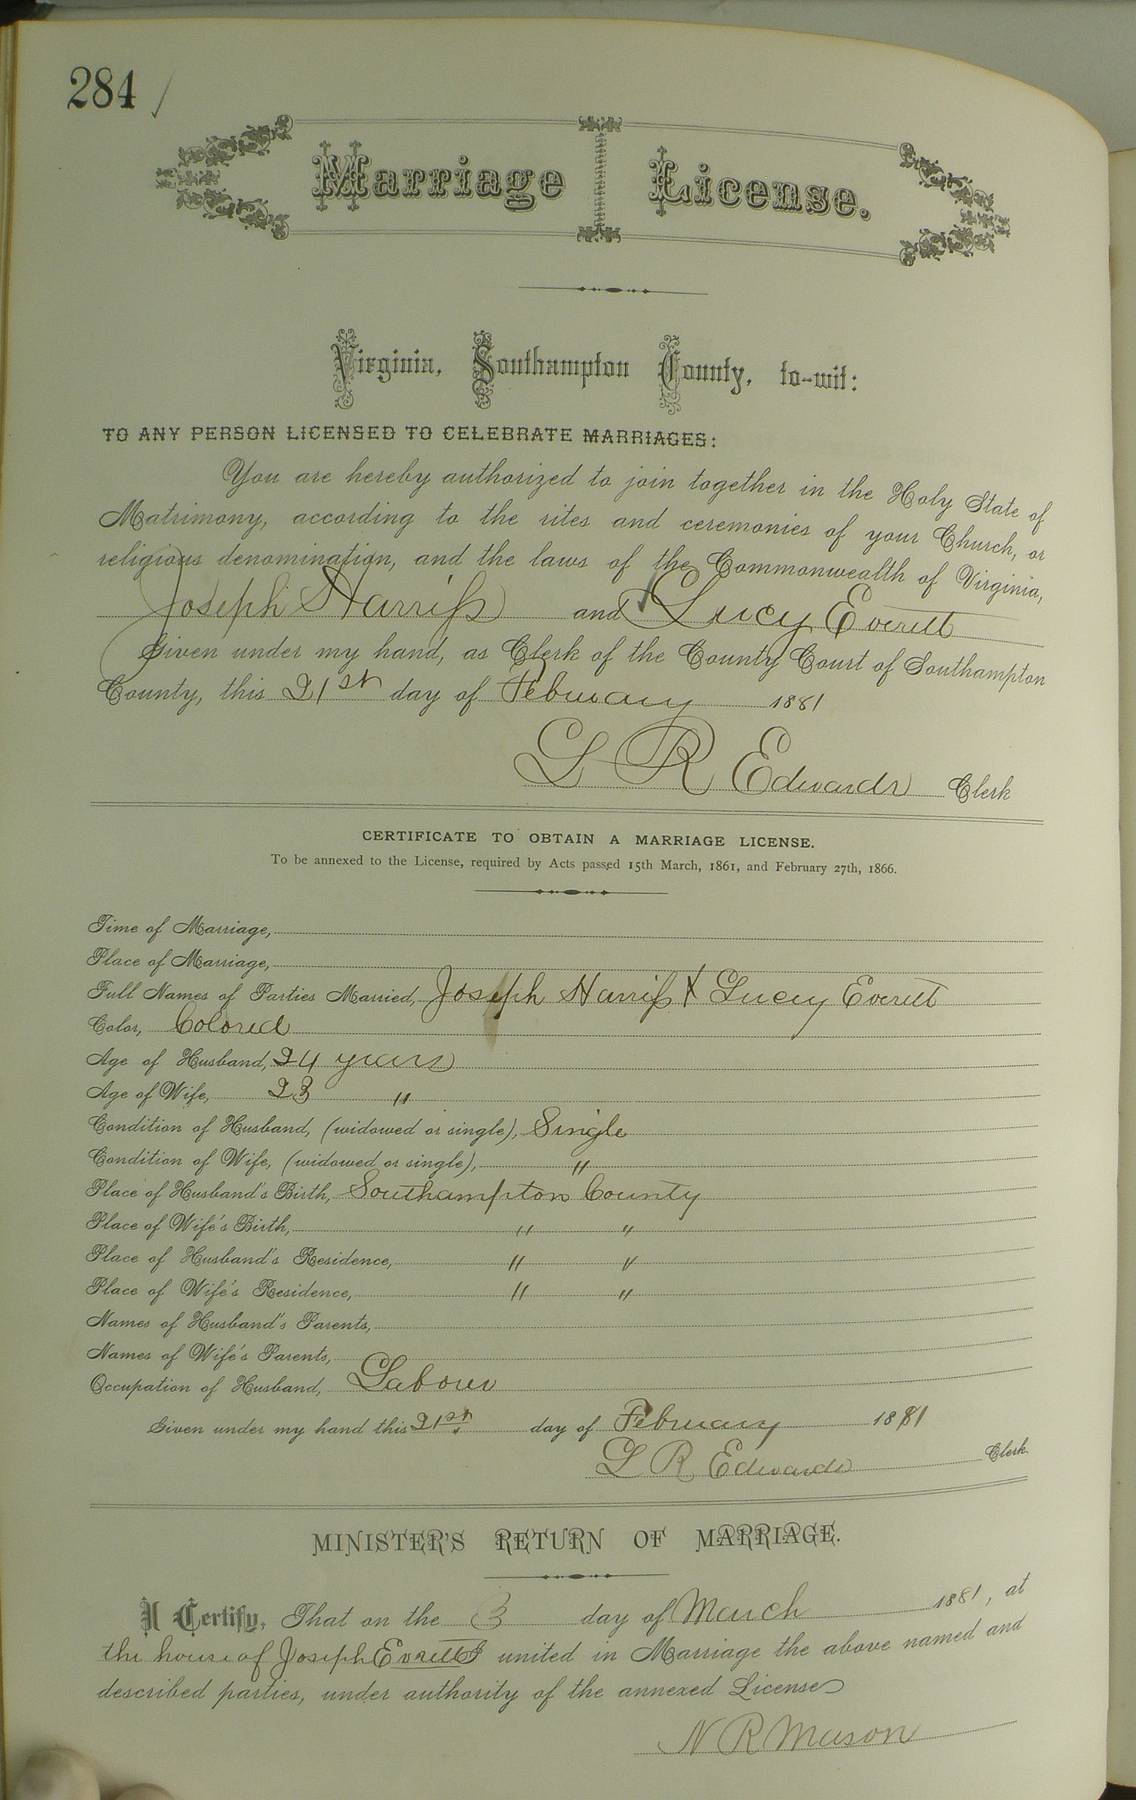 284
Marriage License.
Virginia, Southampton County, to-wit:
TO ANY PERSON LICENSED TO CELEBRATE MARRIAGES:
You are hereby authorized to join together in the Holy State of
Matrimony, according to the rites and ceremonies of your Church, or
religious denomination, and the laws of the Commonwealth of Virginia,
Joseph Harriss and Lucy Everett
Given under my hand, as Clerk of the County Court of Southampton
County, this 21st day of February 1881
L R Edwards Clerk
CERTIFICATE TO OBTAIN A MARRIAGE LICENSE.
To be annexed to the License, required by Acts passed 15th March, 1861, and February 27th, 1866.
Time of Marriage,
Place of Marriage,
Full Names of Parties Married, Joseph Harriss & Lucy Everett
Color, Colored
Age of Husband, 24 years
Age of Wife, 23 "
Condition of Husband, (widowed or single), Single
Condition of Wife, (widowed or single), "
Place of Husband's Birth, Southampton County
Place of Wife's Birth, " "
Place of Husband's Residence, " "
Place of Wife's Residence, " "
Names of Husband's Parents,
Names of Wife's Parents,
Occupation of Husband, Laborer
Given under my hand this 21st day of February 1881
L R Edwards Clerk
MINISTER'S RETURN OF MARRIAGE.
I Certify, That on the 3 day of March 1881, at
the house of Joseph Everetts I united in Marriage the above named and
described parties, under authority of the annexed License
N R Mason